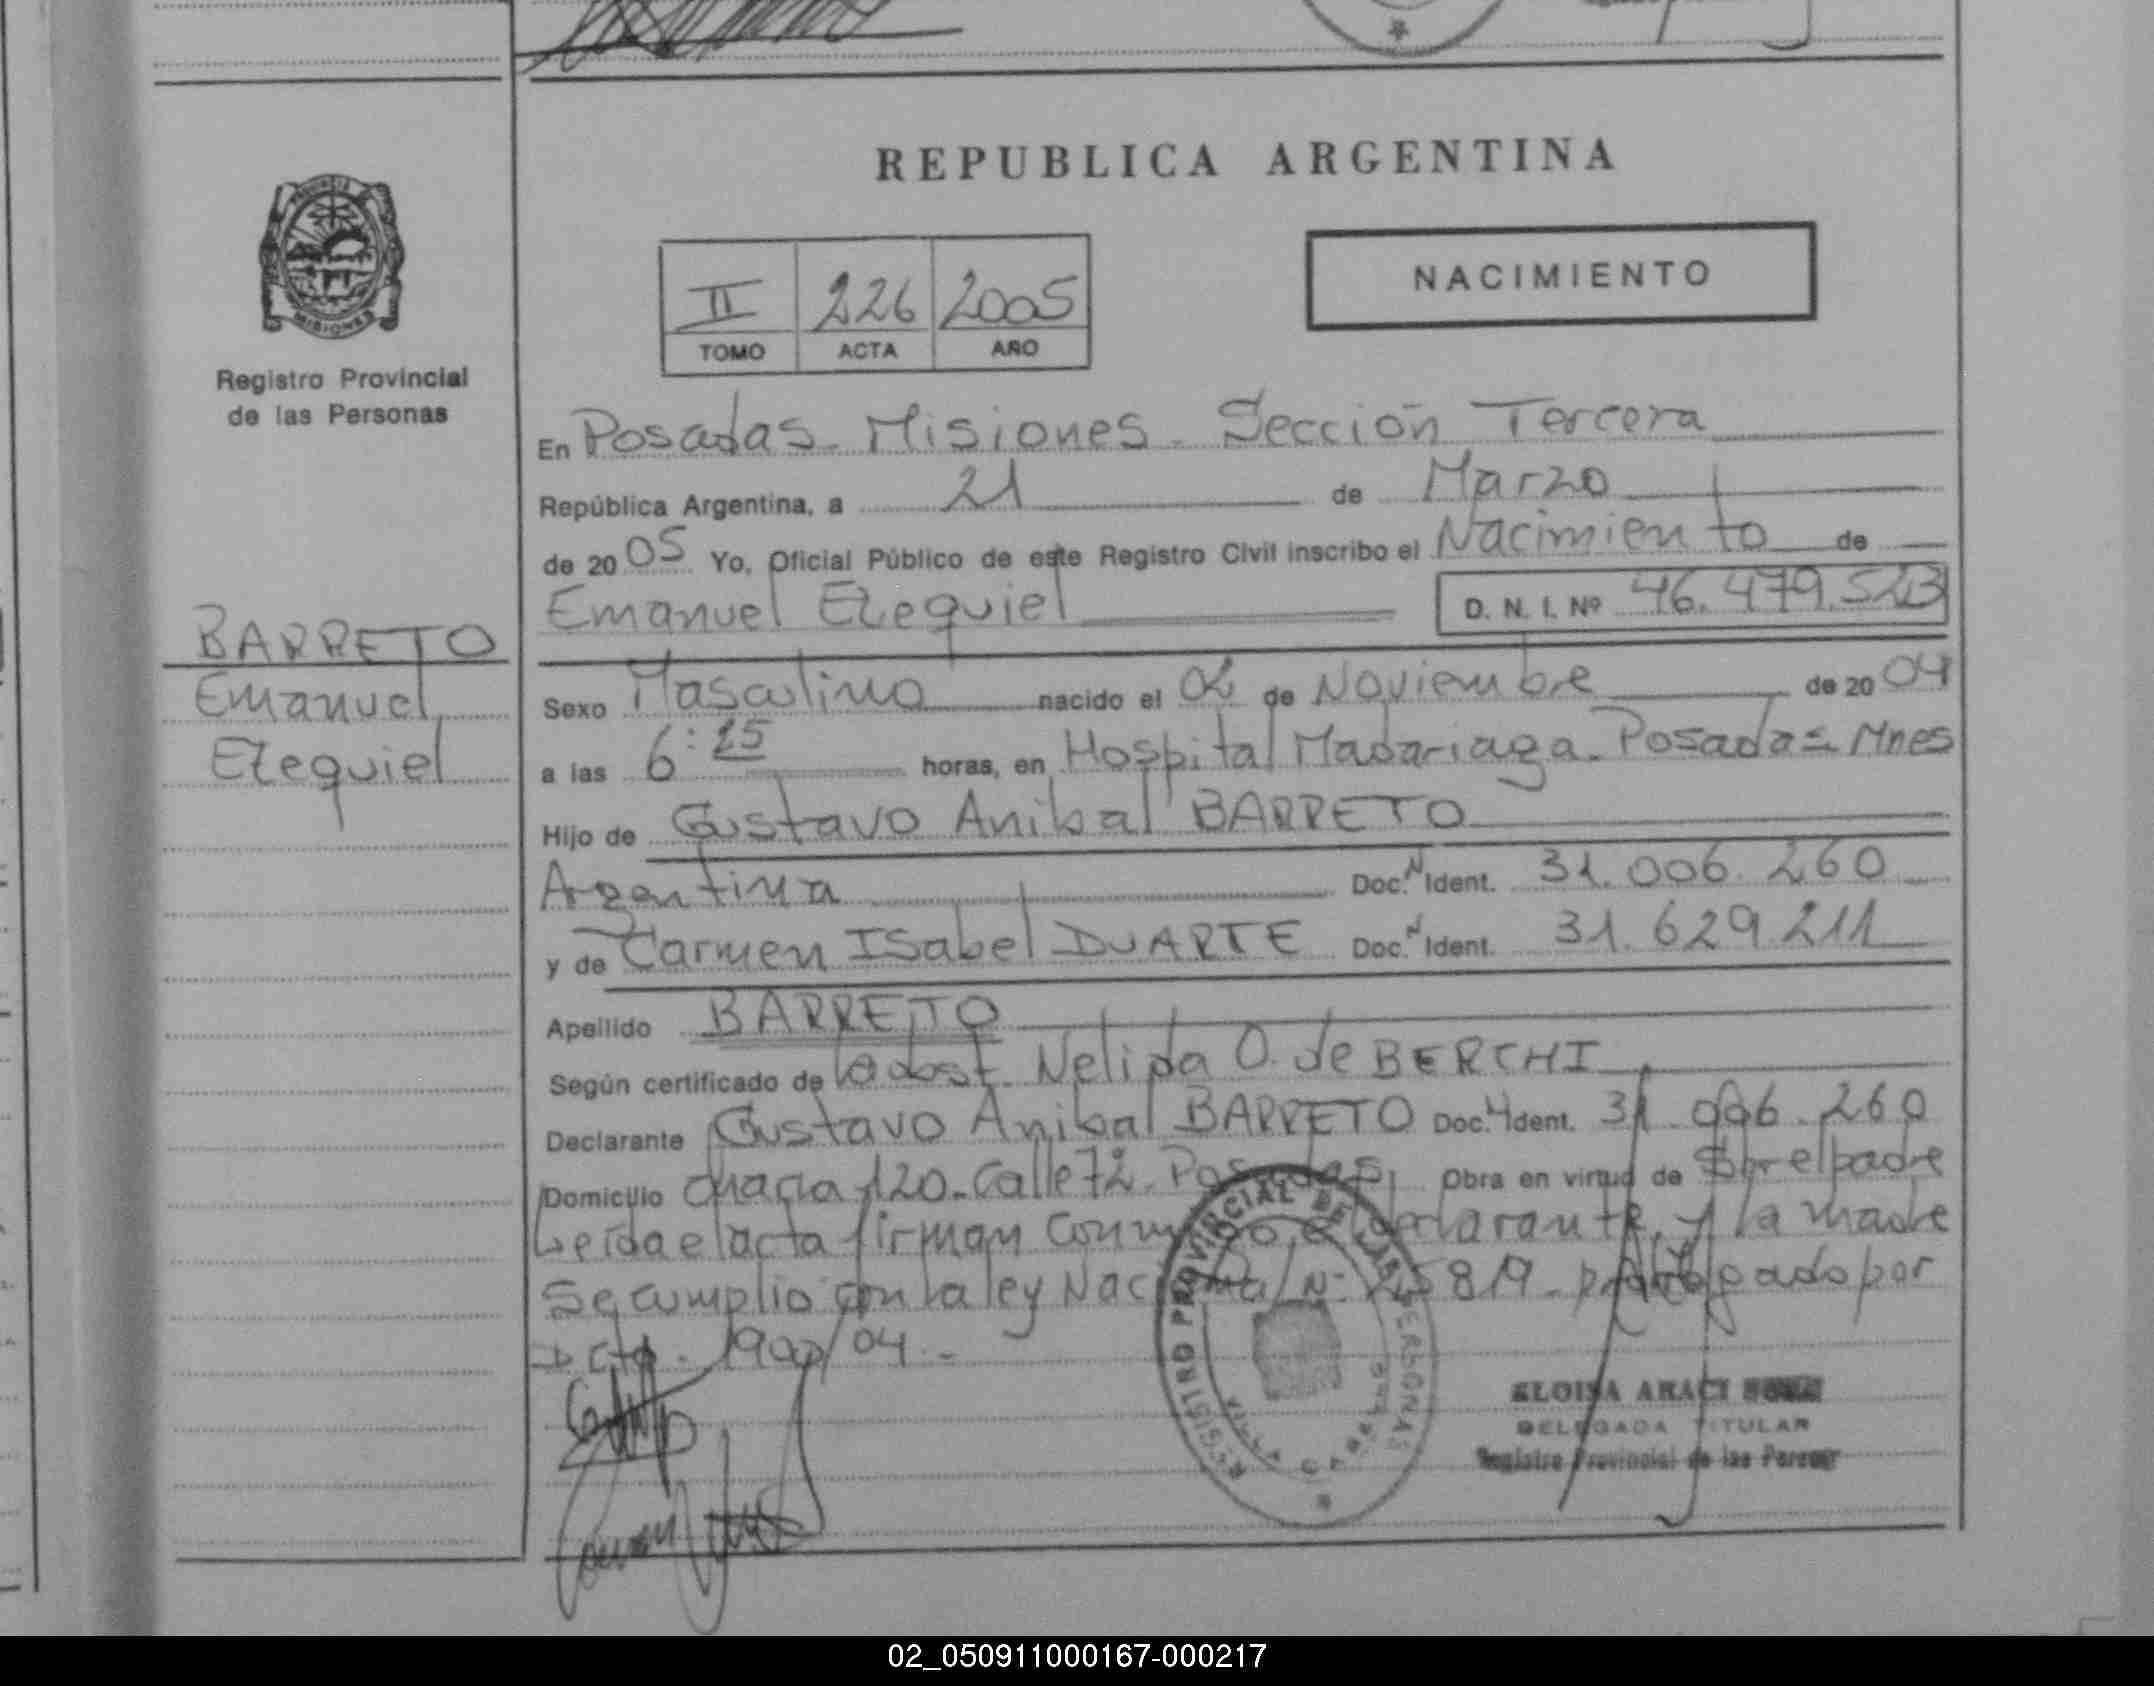 REPUBLICA ARGENTINA
PROVINCIA
MISIONES
Registro Provincial
de las Personas
II 226 2005
TOMO ACTA AÑO
NACIMIENTO
En Posadas - Misiones - Sección Tercera
República Argentina, a 21 de Marzo
de 20 05 Yo, Oficial Público de este Registro Civil inscribo el Nacimiento de
Emanuel Ezequiel D. N. I. Nº 46.479.523
BARRETO
Emanuel
Ezequiel
Sexo Masculino nacido el 02 de Noviembre de 20 04
a las 6:25 horas, en Hospital Madariaga - Posadas - Mnes
Hijo de Gustavo Anibal BARRETO
Argentina Doc. N Ident. 31.006.260
y de Carmen Isabel DUARTE Doc. N Ident. 31.629.211
Apellido BARRETO
Según certificado de la obst. Nelida O. de BERCHI
Declarante Gustavo Anibal BARRETO Doc. Ident. 31.006.260
Domicilio chacra 120 - Calle 72 - Posadas Obra en virtud de Ser el padre
Leida el acta firman conmigo el declarante y la madre
Se cumplio con la ley Nacional N: 25819 - prorrogado por
Dcto - /04.-
REGISTRO PROVINCIAL DE LAS PERSONAS
VILLA CABELLO
ELOISA ARACI
DELEGADA TITULAR
Registro Provincial de las Personas
02_050911000167-000217